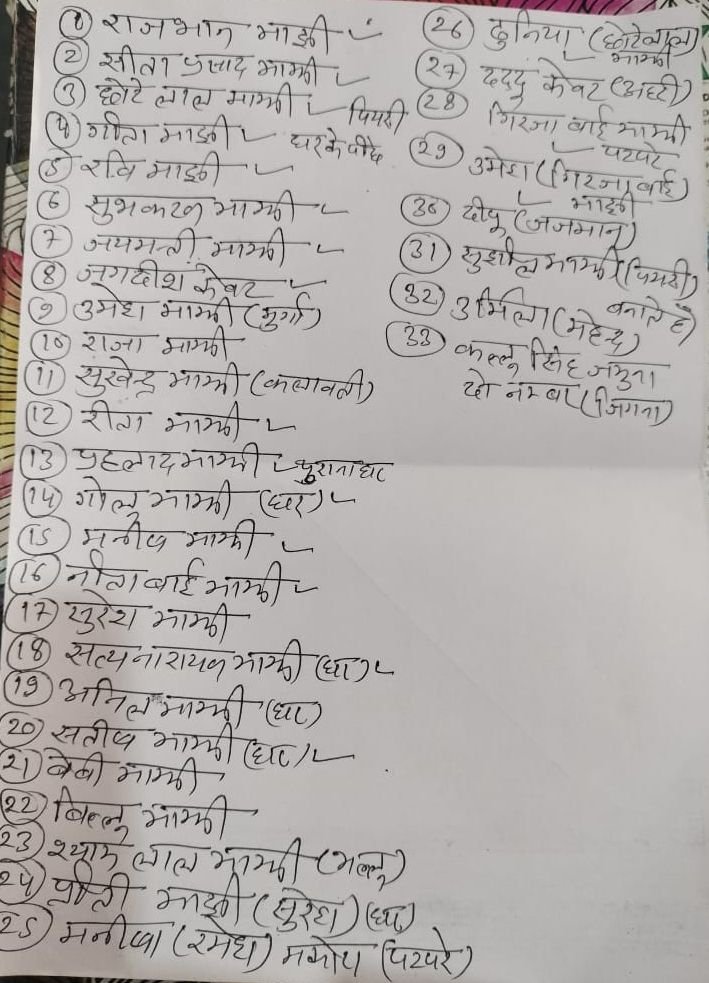 ① राजभान माझी
② सीता प्रसाद माझी
③ छोटे लाल माझी पियरी
④ गीता माझी घर के पीछे
⑤ रवि माझी
⑥ सुभकरन माझी
⑦ जयमन्ती माझी
⑧ जगदीश केवट
⑨ उमेश माझी (मुर्गा)
⑩ राजा माझी
⑪ सुखेन्द्र माझी (कलावती)
⑫ रीता माझी
⑬ प्रहलाद माझी पुराना घर
⑭ गोलू माझी (घर)
⑮ मनीष माझी
⑯ नीता बाई माझी
⑰ सुरेश माझी
⑱ सत्यनारायण माझी (घर)
⑲ अनिल माझी (घर)
⑳ सतीष माझी (घर)
㉑ बेबी माझी
㉒ बिल्लू माझी
㉓ श्याम लाल माझी (मल्लू)
㉔ प्रीती माझी (सुरेश) (घर)
㉕ मनीषा (रमेश) (पटपरे)
㉖ दुनिया (छोटेलाल)
माझी
㉗ दददु केवट
㉘ गिरजा बाई माझी
पटपरे
㉙ उमेश (गिरजा बाई)
माझी
㉚ दीपू (जजमान)
㉛ सुशील माझी (पियरी)
बनाते हैं)
㉜ उर्मिला (महेन्द्र)
㉝ कल्लू सिंह जमुना
दो नम्बर (जिगना)